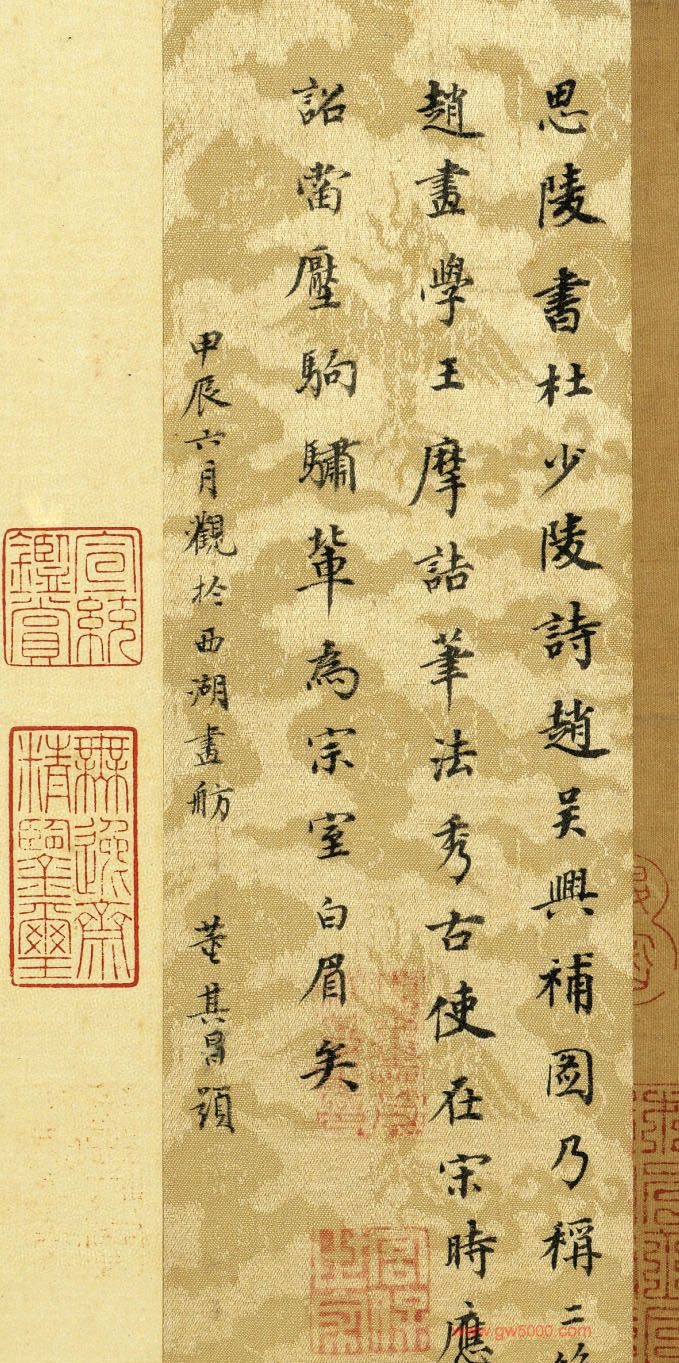 思陵書杜少陵詩趙吳興補圖乃稱二
趙畫學王摩詰筆法秀古使在宋時應
詔當壓駒驌輩為宗室白眉矣
甲辰六月觀於西湖畫舫 董其昌題
宣統鑑賞
無逸齋精鑒璽
www.gw5000.com